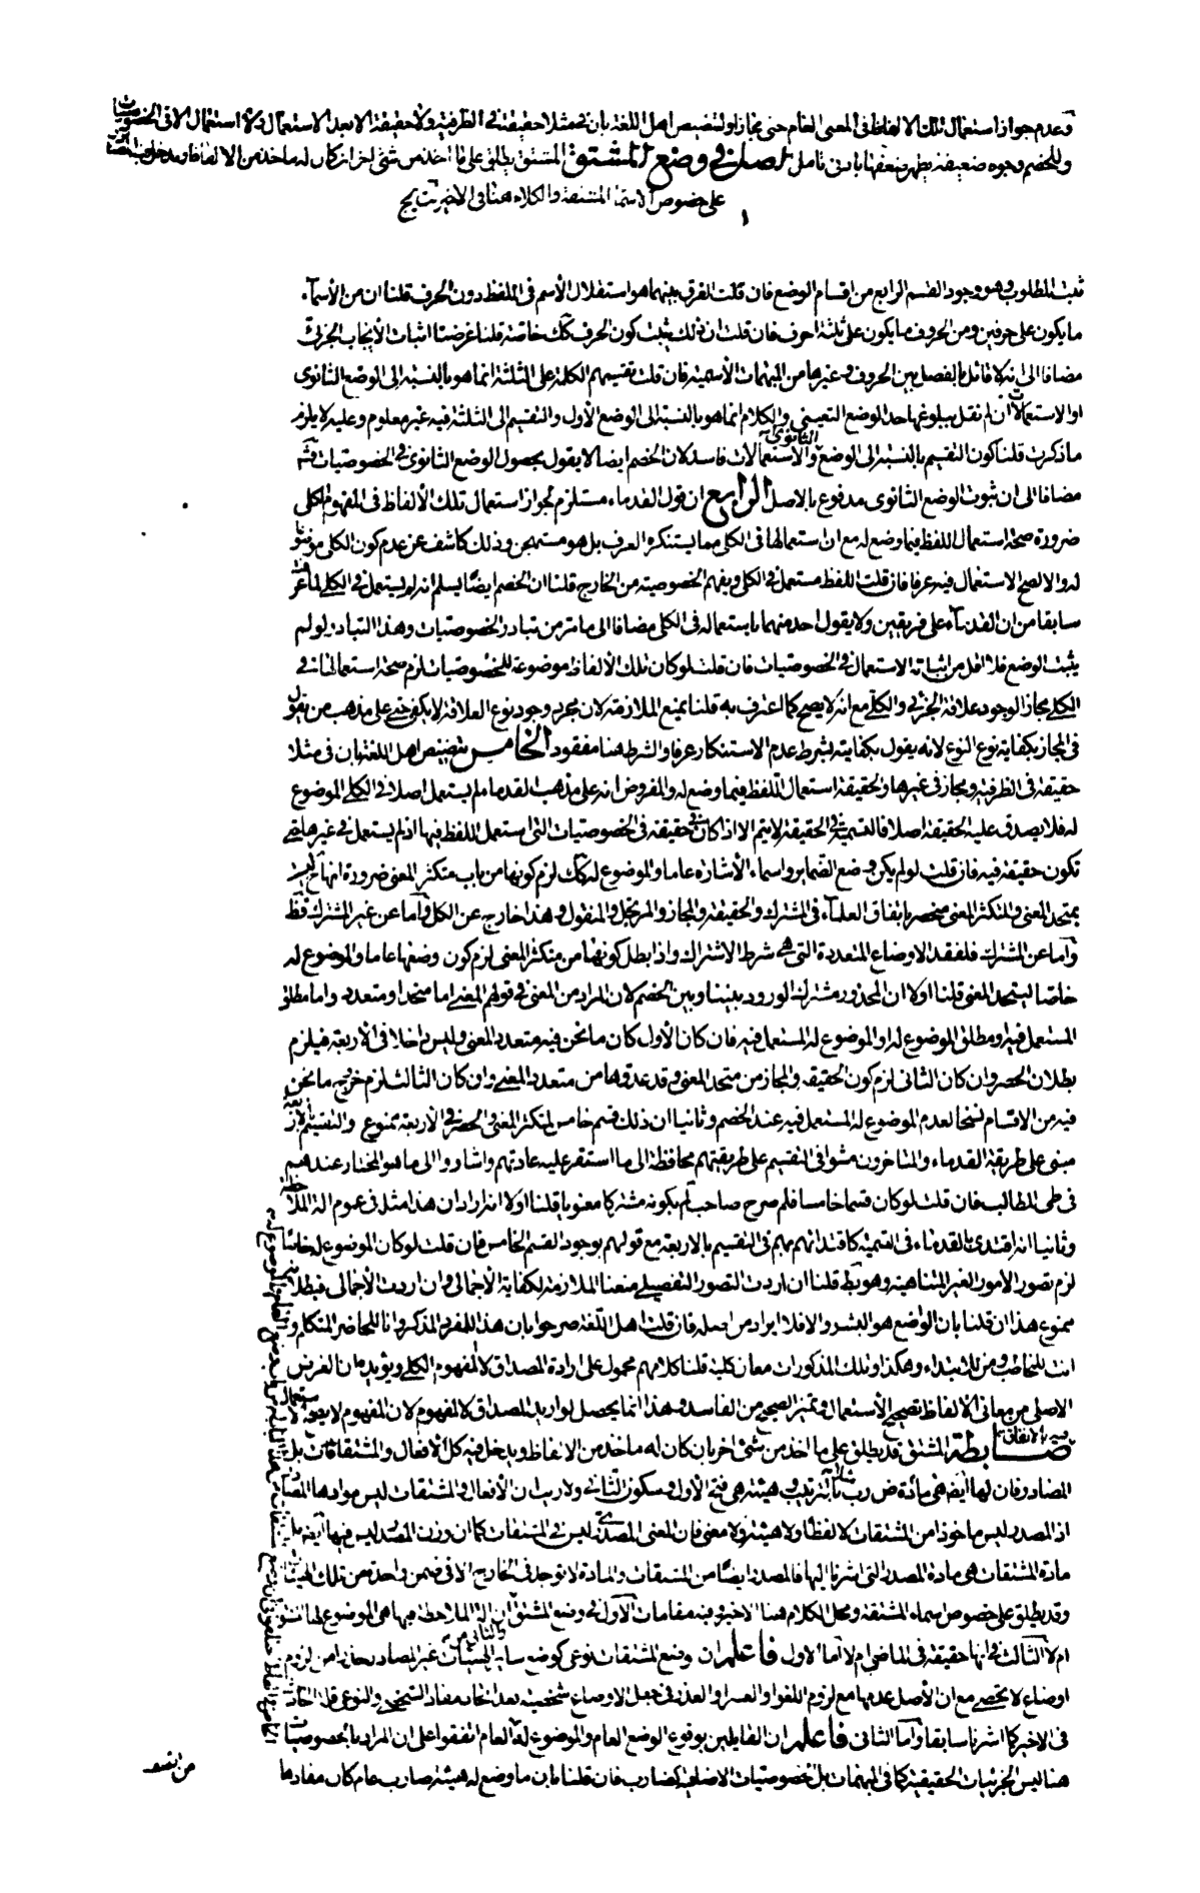 وعدم جواز استعمال تلك الالفاظ فى المعنى العام حتى مجازا ولتنصيص اهل اللغة بان فى مثلا حقيقة فى الظرفية ولا حقيقة الا بعد الاستعمال ولا استعمال الا فى الخصوصيات
وللخصم وجوه ضعيفة يظهر ضعفها بادنى تامل اصل فى وضع المشتق المشتق يطلق على ما اخذ من شئ اخر ان كان له ماخذ من الالفاظ وقد يطلق
على خصوص الاسماء المشتقة والكلام هنا فى الاخير
ثبت المطلوب وهو وجود القسم الرابع من اقسام الوضع فان قلت الفرق بينهما هو استقلال الأسم فى التلفظ دون الحرف قلنا ان من الأسمآء
ما يكون على حرفين ومن الحروف ما يكون على ثلثة احرف فان قلت ان ذلك يثبت كون الحرف كك خاصة قلنا غرضنا اثبات الأيجاب الجزئى
مضافا الى انه لا قائل بالفصل بين الحروف وغيرها من المبهمات الأسمية فان قلت تقسيمهم الكلمة على الثلثة انما هو بالنسبة الى الوضع الثانوى
او الاستعمالات ان لم نقل ببلوغها حد الوضع التعينى والكلام انما هو بالنسبة الى الوضع الأول والتقسيم الى الثلثة فيه غير معلوم وعليه لا يلزم
ما ذكرت قلنا كون التقسيم بالنسبة الى الوضع الثانوى والاستعمالات فاسد لان الخصم ايضا لا يقول بحصول الوضع الثانوى فى الخصوصيات
مضافا الى ان ثبوت الوضع الثانوى مدفوع بالاصل الرابع ان قول القدماء مستلزم لجواز استعمال تلك الألفاظ فى المفهوم الكلى
ضرورة صحة استعمال اللفظ فيما وضع له مع ان استعمالها فى الكلى مما يستنكره العرف بل هو مستهجن وذلك كاشف عن عدم كون الكلى موضوعا
له والا لصح الاستعمال فيه عرفا فان قلت اللفظ مستعمل فى الكلى ويفهم الخصوصية من الخارج قلنا ان الخصم ايضًا يسلم انه لم يستعمل فى الكلى لما عرفت
سابقا من ان القدمآء على فريقين ولا يقول احد منهما باستعماله فى الكلى مضافا الى ما مر من تبادر الخصوصيات وهذا التبادر لو لم
يثبت الوضع فلا اقل من اثباته الاستعمال فى الخصوصيات فان قلت لو كان تلك الألفاظ موضوعة للخصوصيات لزم صحة استعمالها فى
الكلى مجازا لوجود علاقة الجزئى والكلى مع انه لا يصح كما اعترف به قلنا نمنع الملازمة لان مجرد وجود نوع العلاقة لا يكفى حتى على مذهب من يقول
فى المجاز بكفاية نوع النوع لانه يقول بكفايته بشرط عدم الاستنكار عرفا والشرط هنا مفقود الخامس تنصيص اهل اللغة بان فى مثلا
حقيقة فى الظرفية ومجاز فى غيرها والحقيقة استعمال اللفظ فيما وضع له والمفروض انه على مذهب القدما ما لم يستعمل اصلا فى الكلى الموضوع
له فلا يصدق عليه الحقيقة اصلا فالتسمية فى الحقيقة لا يتم الا اذا كان فى حقيقة فى الخصوصيات التى استعمل اللفظ فيها اذ لم يستعمل فى غيرها حتى
تكون حقيقة فيه فان قلت لو لم يكن وضع الضماير واسماء الأشارة عاما والموضوع له كك لزم كونها من باب متكثر المعنى ضرورة انها ليست
بمتحد المعنى والمتكثر المعنى منحصر باتفاق العلمآء فى المشترك والحقيقة والمجاز والمرتجل والمنقول وهذا خارج عن الكل اما عن غير المشترك فظ
واما عن المشترك فلفقد الاوضاع المتعددة التى هى شرط الاشتراك واذا بطل كونها من متكثر المعنى لزم كون وضعها عاما والموضوع له
خاصا ليتحد المعنى قلنا اولا ان المحذور مشترك الورود بيننا وبين الخصم لان المراد من المعنى فى قولهم المعنى اما متحد او متعدد واما مطلق
المستعمل فيه او مطلق الموضوع له او الموضوع له المستعمل فيه فان كان الأول كان ما نحن فيه متعدد المعنى وليس داخلا فى الأربعة فيلزم
بطلان الحصر وان كان الثانى لزم كون الحقيقة والمجاز من متحد المعنى وقد عدوها من متعدد المعنى وان كان الثالث لزم خروج ما نحن
فيه من الاقسام لعدم الموضوع له المستعمل فيه عند الخصم وثانيا ان ذلك قسم خامس لمتكثر المعنى والحصر فى الأربعة ممنوع والتقسيم بالاربعة
مبنى على طريقة القدماء والمتاخرون مشوا فى التقسيم على طريقتهم محافظة الى ما استقر عليه عادتهم واشاروا الى ما هو المختار عندهم
فى طى المطالب فان قلت لو كان قسما خامسا فلم صرح صاحب لم بكونه مشتركا معنويا قلنا اولا انه اراد ان هذا مثل فى عموم الة الملاحظة
وثانيا انه اقتدى بالقدماء فى التسمية كاقتدائهم بهم فى التقسيم بالاربعة مع قولهم بوجود القسم الخامس فان قلت لو كان الموضوع له خاصا
لزم تصور الامور الغير المتناهية وهو بط قلنا ان اردت التصور التفصيلى منعنا الملازمة لكفاية الأجمالى وان اردت الأجمالى فبطلانه
ممنوع هذا ان قلنا بان الواضع هو البشر والا فلا ايراد من اصله فان قلت اهل اللغة صرحوا بان هذا للمفرد المذكر وانا للحاضر المتكلم و
انت للمخاطب ومن للابتداء وهكذا وتلك المذكورات معان كلية قلنا كلامهم محمول على ارادة المصداق لا المفهوم الكلى ويؤيده ان الغرض
الاصلى من معانى الالفاظ تصحيح الأستعمال وتميز الصحيح من الفاسد وهذا انما يحصل لو اريد المصداق لا المفهوم لان المفهوم لا يصح الاستعمال
فيه بالاتفاق ضابطة المشتق قد يطلق على ما اخذ من شئ اخر بان كان له ماخذ من الالفاظ ويدخل فيه كل الأفعال والمشتقات بل
المصادر فان لها ايضه هى مادة ض رب ثابتة بترتيب وهيئة هى فتح الأول وسكون الثانى ولا ريب ان الأفعال والمشتقات ليس موادها المصادر
اذ المصدر ليس ماخوذا من المشتقات لا لفظا ولا هيئة ولا معنى فان المعنى المصدرى ليس فى المشتقات كما ان وزن المصدر ليس فيها ايضه بل
مادة المشتقات هى مادة المصدر التى اشرنا اليها فالمصدر ايضًا من المشتقات والمادة لا توجد فى الخارج الا فى ضمن واحدة من تلك الهيئات
وقد يطلق على خصوص اسماء المشتقة ومحل الكلام هنا الاخير وفيه مقامات الأول فى وضع المشتق ان الة الملاحظة فيها هى الموضوع لها
ام لا الثالث فى انها حقيقة فى الماضى ام لا اما الاول فاعلم ان وضع المشتقات نوعى كوضع ساير الهيئات غير المصادر حذرا من لزوم
اوضاع لا تحصى مع ان الأصل عدمها مع لزوم اللغو او العسر او العذر فى جعل الاوضاع شخصية بعد اتحاد مفاد الشخصى والنوعى
فى الاخير كما اشرنا سابقا واما الثانى فاعلم ان القايلين بوقوع الوضع العام والموضوع له العام اتفقوا على ان المراد بالخصوصيات
هنا ليس الجزئيات الحقيقية كما فى المبهمات بل الخصوصيات الاضافية كضارب فان قلنا بان ما وضع له هيئة ضارب عام كان مفادها